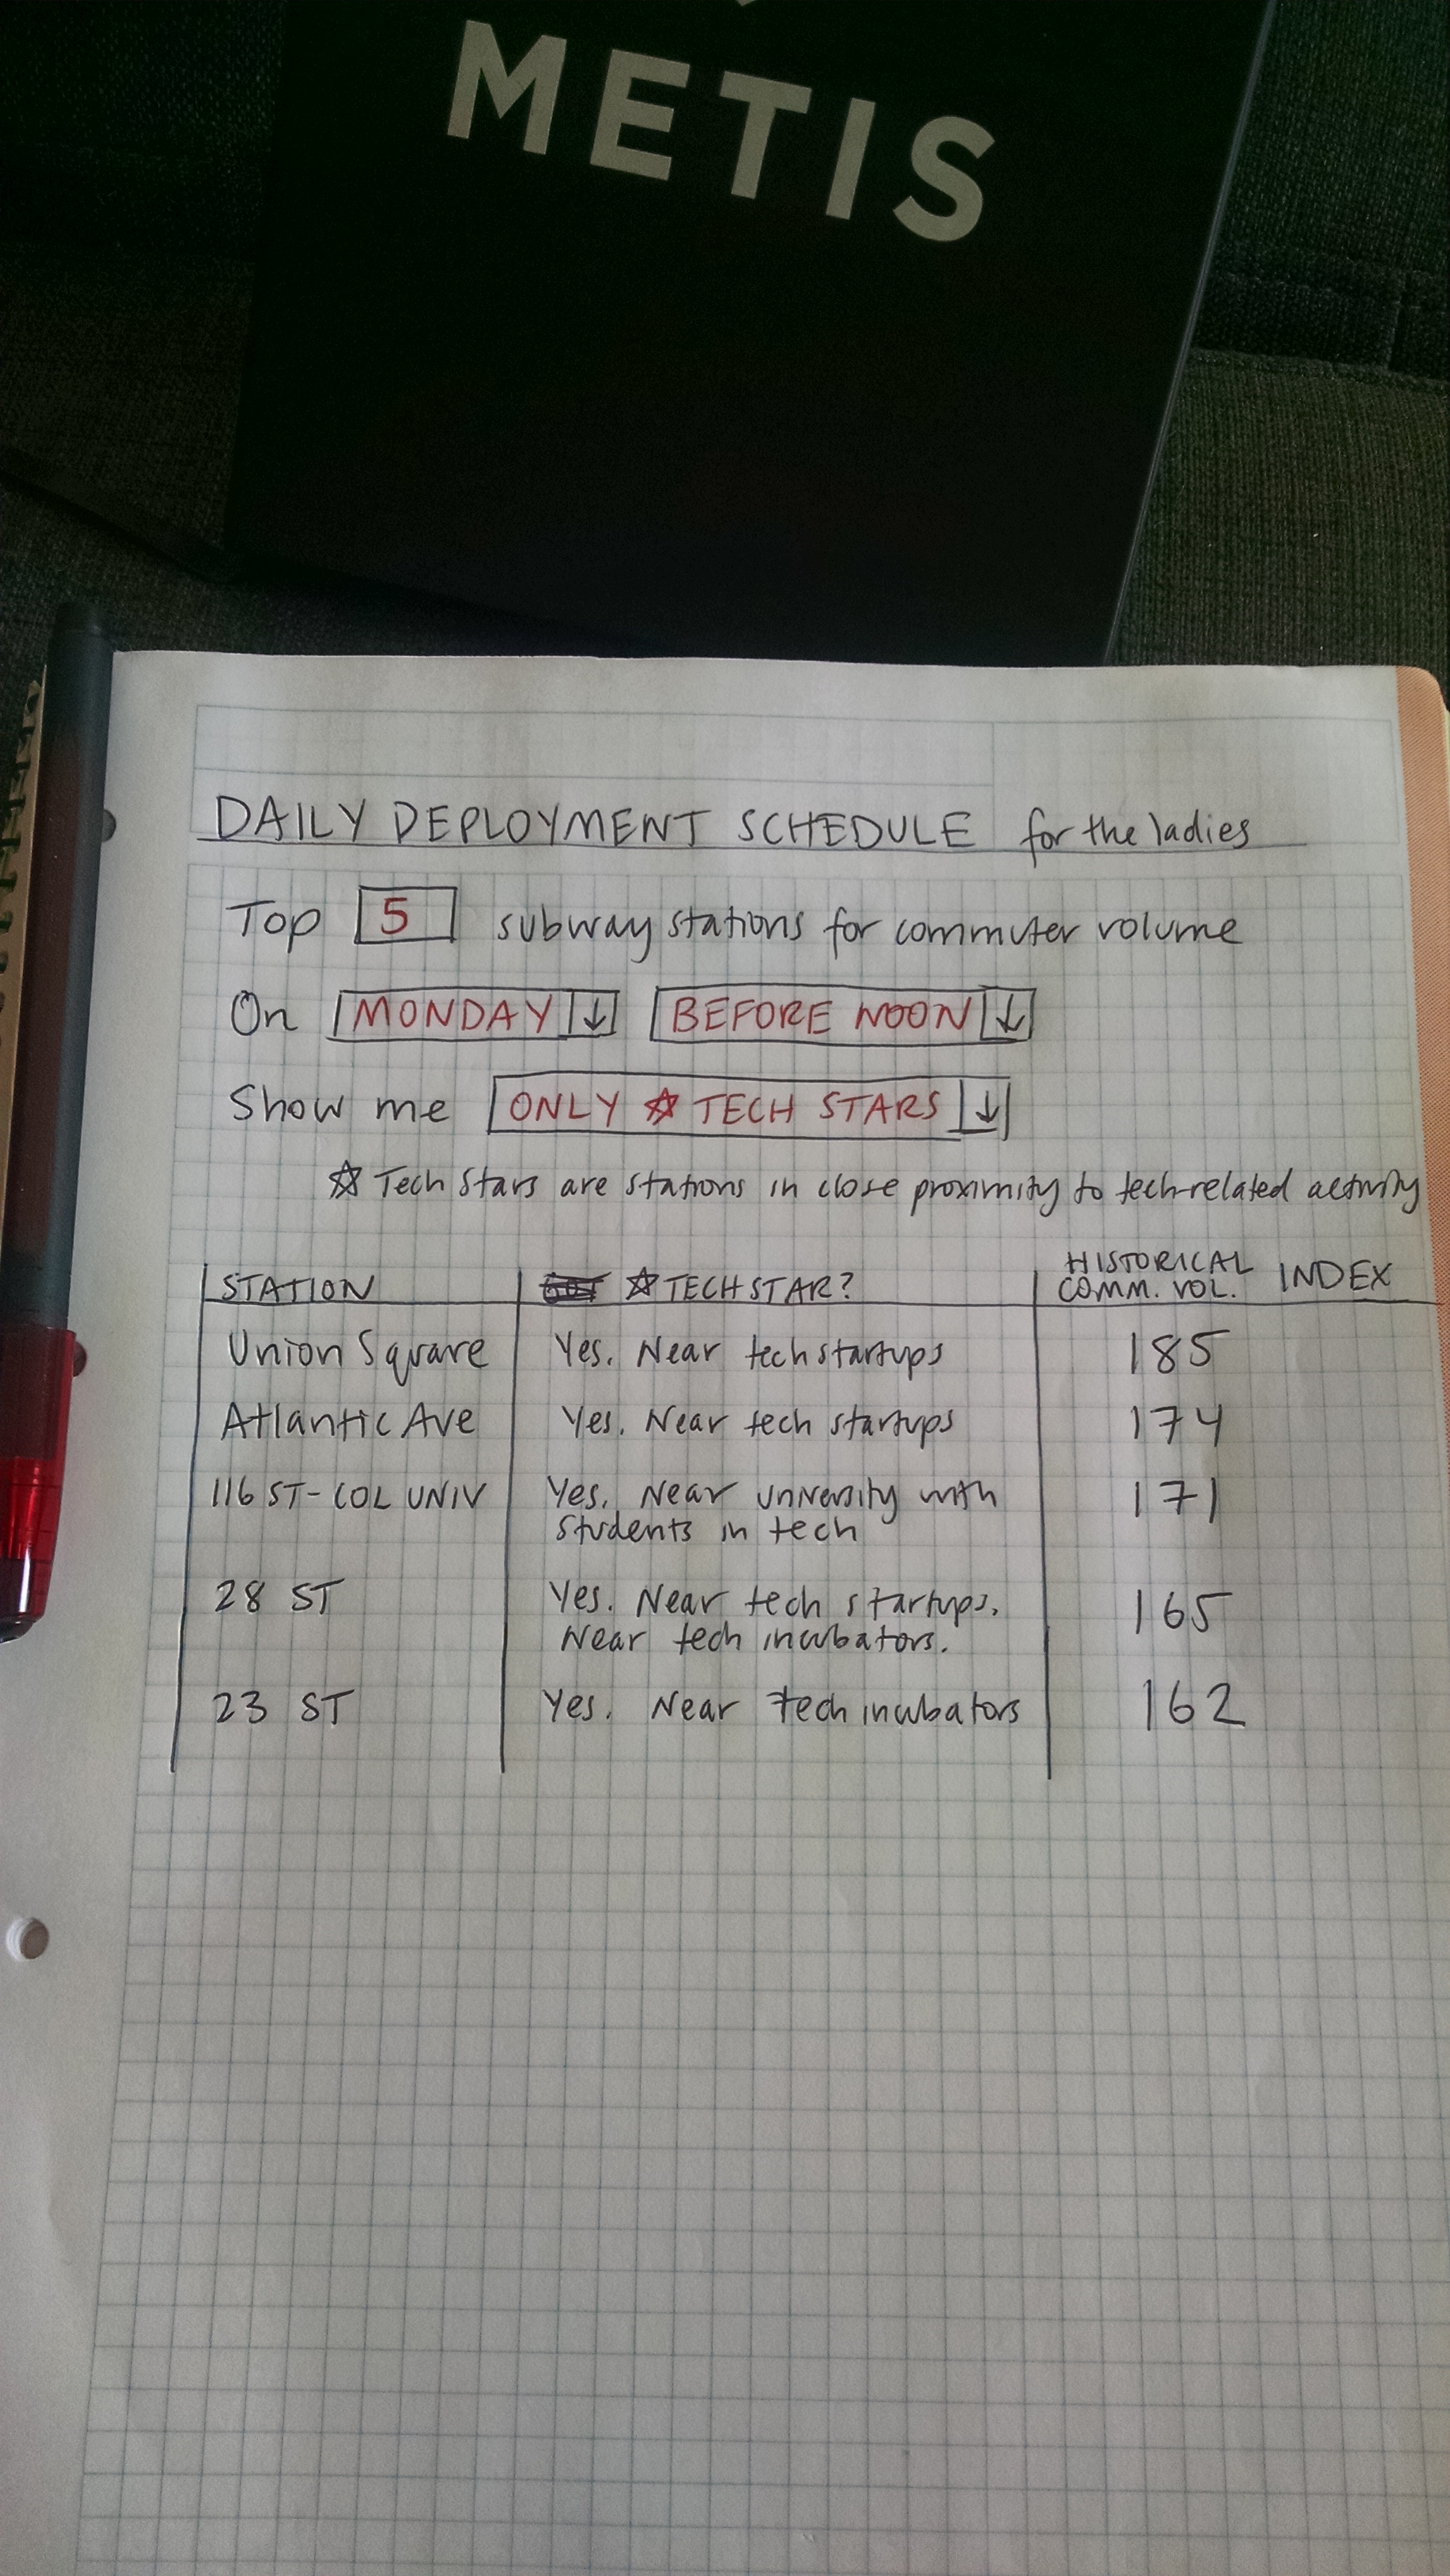 METIS
DAILY DEPLOYMENT SCHEDULE for the ladies
Top 5 subway stations for commuter volume
On MONDAY ↓ BEFORE NOON ↓
Show me ONLY ☆ TECH STARS ↓
☆ Tech Stars are stations in close proximity to tech-related activity
STATION ☆ TECH STAR? HISTORICAL COMM. VOL. INDEX
Union Square Yes. Near tech startups 185
Atlantic Ave Yes. Near tech startups 174
116 ST - COL UNIV Yes. Near university with 171
students in tech
28 ST Yes. Near tech startups. 165
Near tech incubators.
23 ST Yes. Near tech incubators 162